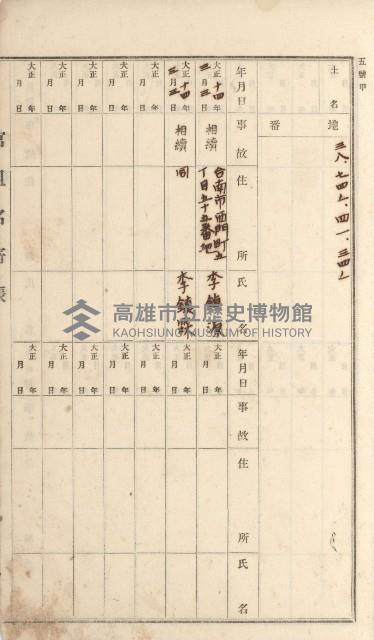 五號甲
土名
地番
三八、七四ノ、四一、三四ノ
年月日
事故
住所
氏名
大正十四年三月三日
相續
台南市西門町五丁目五十五番地
大正十四年三月三日
相續
同
大正 年 月 日
大正 年 月 日
大正 年 月 日
大正 年 月 日
年月日
事故
住所
氏名
大正 年 月 日
大正 年 月 日
大正 年 月 日
大正 年 月 日
大正 年 月 日
大正 年 月 日
高雄市立歷史博物館
KAOHSIUNG MUSEUM OF HISTORY